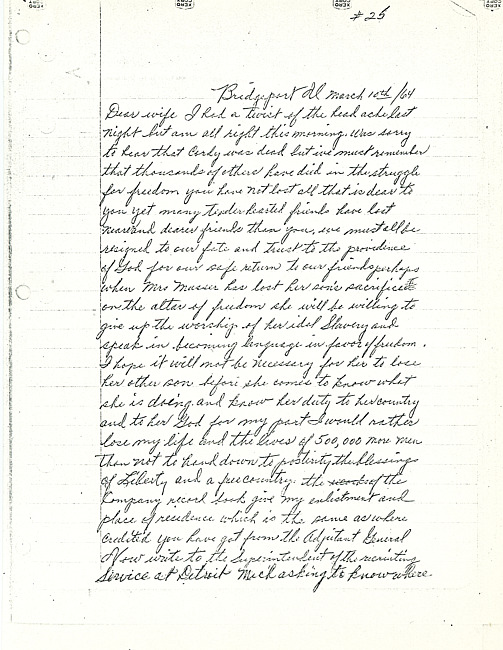 # 25
Bridgeport Al March 10th /64
Dear wife I had a twist of the head ache last
night but am all right this morning. Was sorry
to hear that Cordy was dead but we must remember
that thousands of others have did in the struggle
for freedom you have not lost all that is dear to
you yet many tender hearted friends have lost
near and dearer friends than you, we must all be
resigned to our fate and trust to the providence
of God for our safe return to our friends perhaps
when Mrs Masser has lost her son sacrificed
on the altar of freedom she will be willing to
give up the worship of her idol Slavery and
speak in becoming language in favor of freedom.
I hope it will not be necessary for her to lose
her other son before she comes to know what
she is doing and know her duty to her country
and to her God for my part I would rather
lose my life and the lives of 500,000 more men
than not to hand down to posterity the blessings
of Liberty and a free country. the of the
Company record book give my enlistment and
place of residence which is the same as where
credited you have got from the Adjutant General
Now write to the Superintendent of the recruiting
Service at Detroit Mich asking to know where